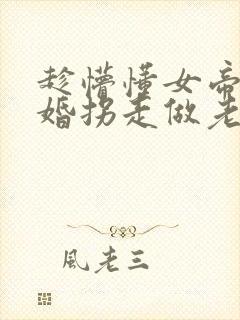 趁懵懂女帝
婚拐走做老
風老三